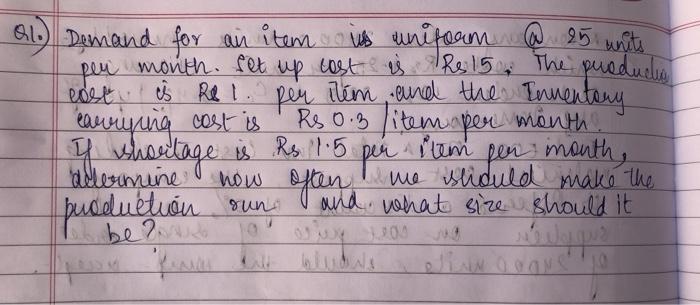 Q1.) Demand for an item is uniform @ 25 units
per month. Set up cost is Rs 15. The production
cost is Re 1. per item and the Inventory
carrying cost is Rs 0.3 /item per month.
If shortage is Rs 1.5 per item per month,
determine how often we should make the
production run and what size should it
be?